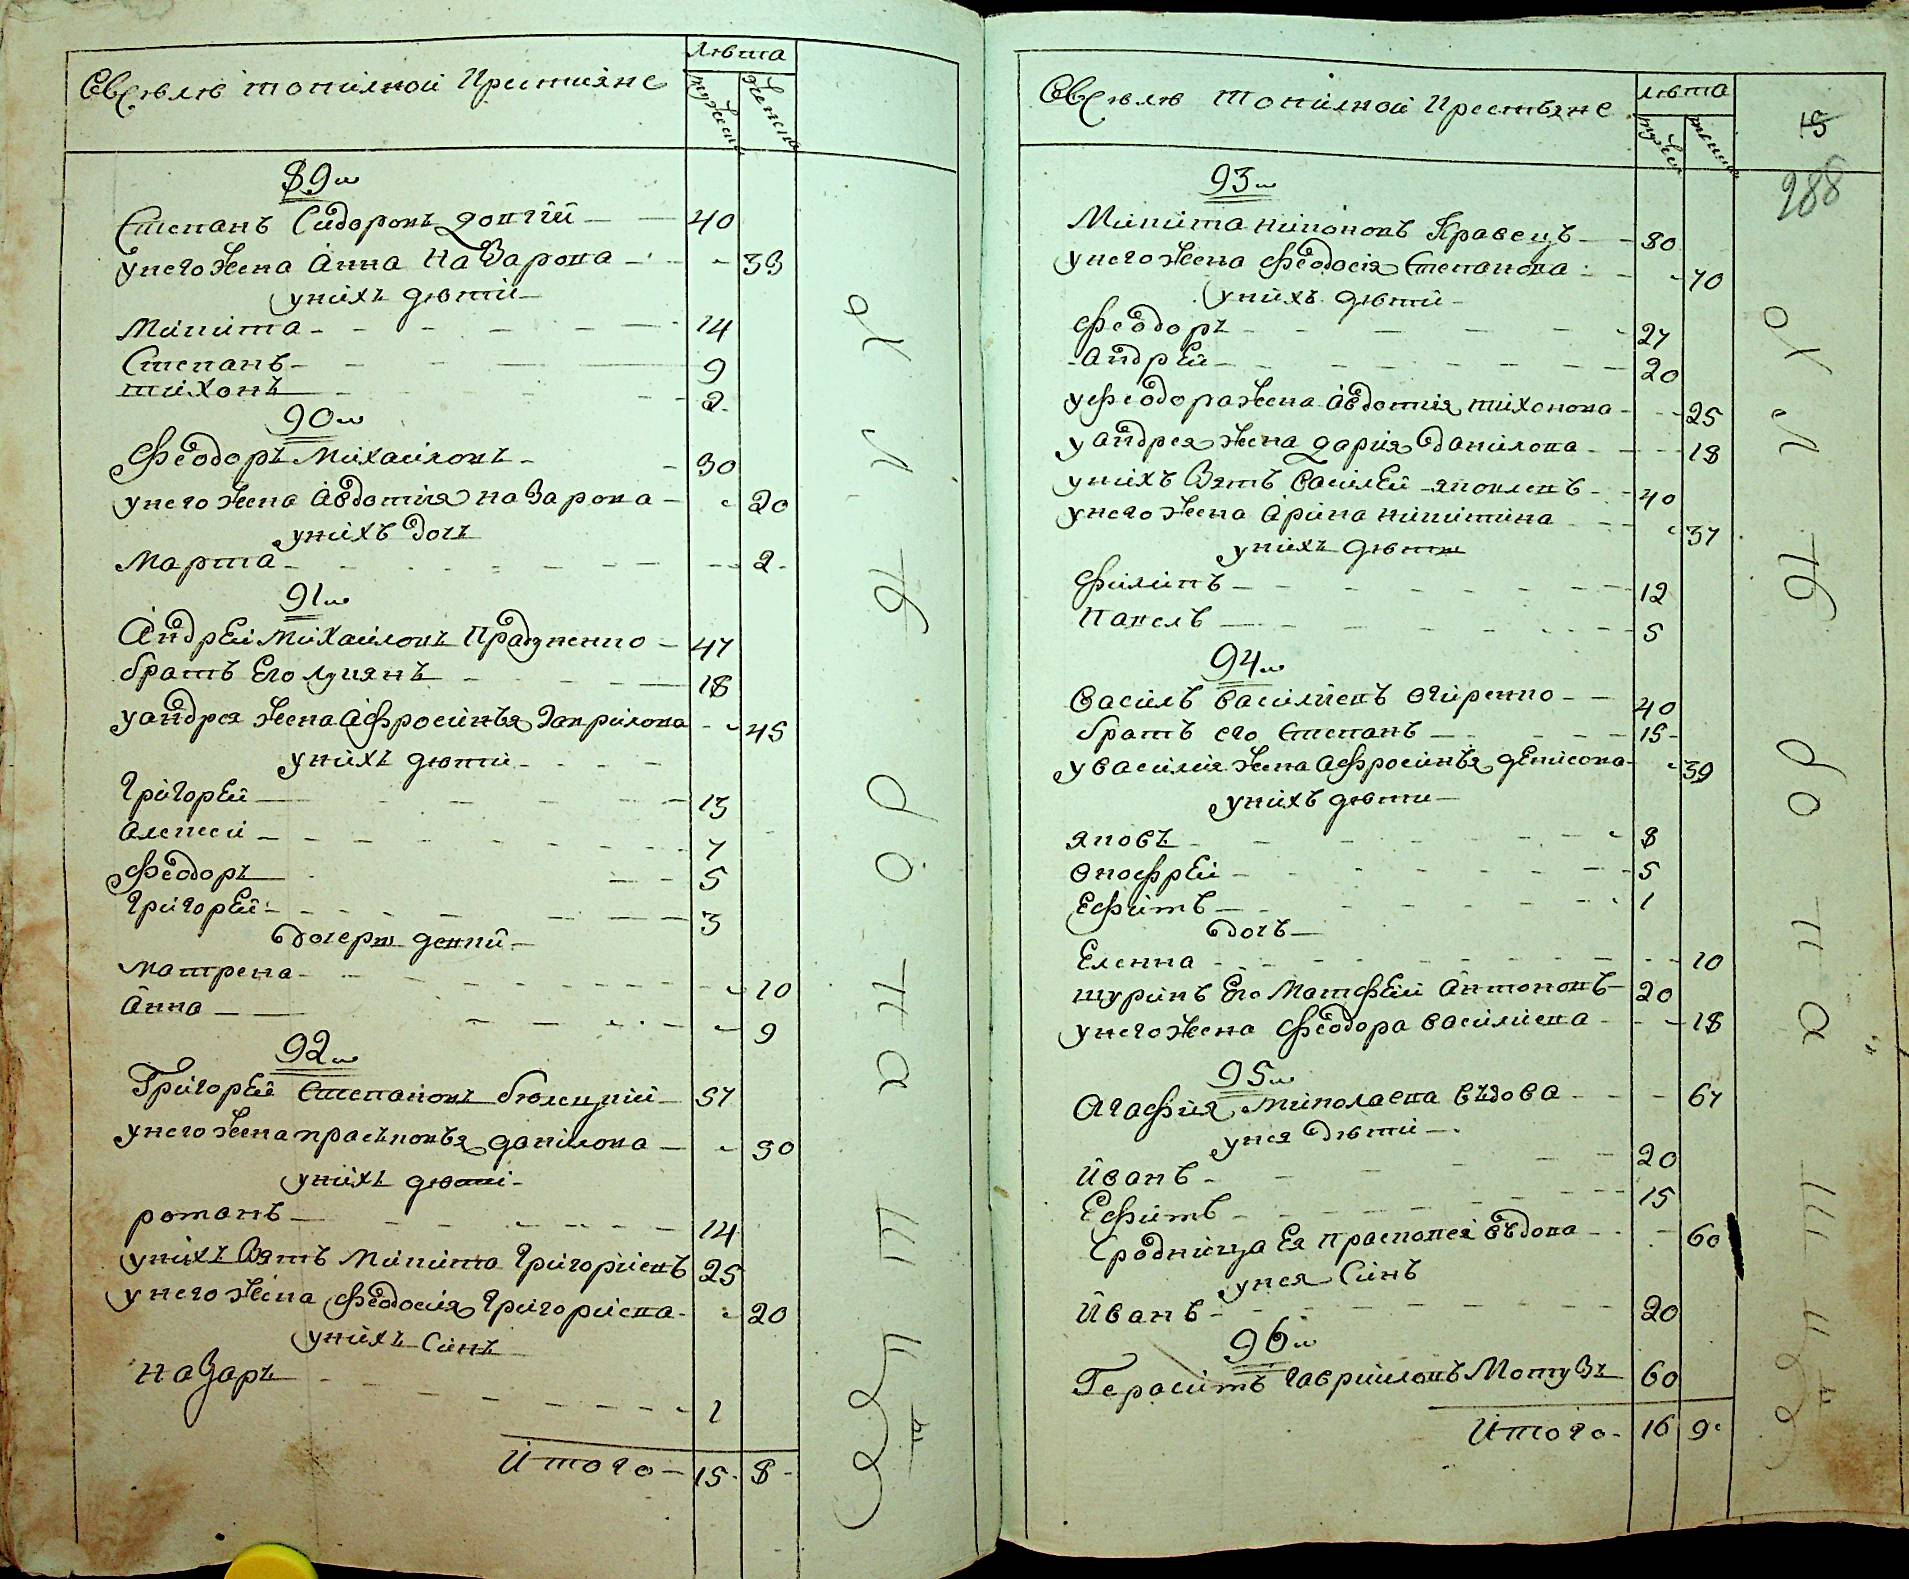 Всѣлѣ топилной Крестіяне
Лѣта
мужеска
женска
89
Степанъ Сидоровъ довгій 40
унего жена Анна Назарова 33
унихъ дѣти
Микита 14
Степанъ 9
тихонъ 2
90
Феодоръ Михаиловъ 30
унего жена Авдотия назарова 20
унихъ доч
Марта 2
91
Андрей Михаиловъ
братъ Его лукянъ 18
уандрея жена Афросинья Гаврилова 45
унихъ дѣти
Григорей 13
алексей 7
Феодоръ 5
Григорей 3
дочери
матрена 10
Анна 9
92
Григорей Степановъ 57
унего жена прасковья данилова 50
унихъ дѣти
романъ 14
унихъ Зять Микита Григориевъ 25
унего жена Феодосия Григориева 20
унихъ Синъ
назаръ 1
Итого 15 8
Всѣлѣ топилной Крестьяне
лѣта
288
93
Микита никоновъ Кравецъ 80
унего жена Феодосія Степанова 70
унихъ дѣти
Феодоръ 27
андрей 20
уФеодора жена Авдотия тихонова 25
уандрея жена дария данилова 18
унихъ Зять Василей яковлевъ 40
унего жена Арина никитина 37
унихъ дѣти
Филипъ 12
Павелъ 5
94
Василъ василиевъ огиренко 40
братъ его Степанъ 15
увасилия жена Афросинья денисова 39
унихъ дѣти
яковъ 8
онофрей 5
Ефимъ 1
дочъ
Еленна 10
шуринъ Его Матфей Антоновъ 20
унего жена Феодора василиева 18
95
Агафия миколаева въдова 67
унея дѣти
Иванъ 20
Ефимъ 15
Сродница Ея прасковея въдова 60
унея Синъ
Иванъ 20
96
Герасимъ Гавриловъ Мотузъ 60
Итого 16 9